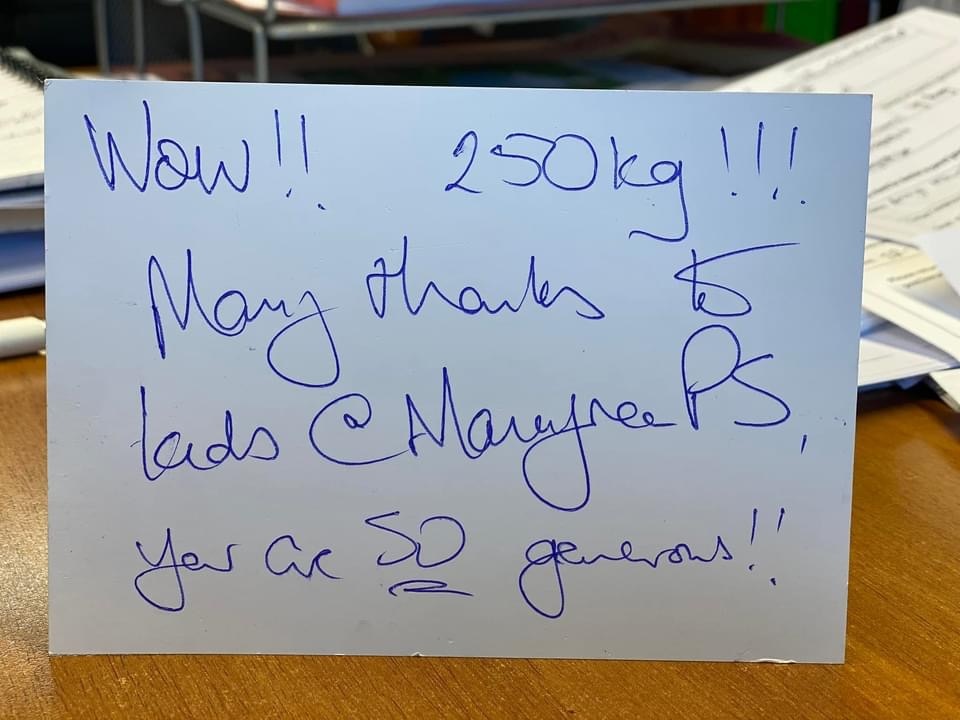 Wow!! 250kg!!!
Many thanks to
kids @ Moneyrea PS,
you are SO generous!!